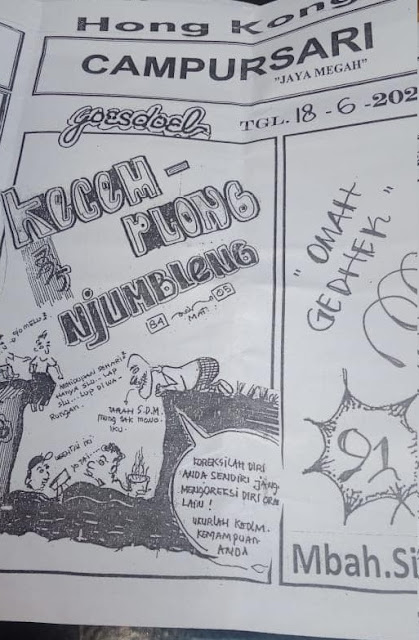 Hong Kong
CAMPURSARI
"JAYA MEGAH"
goesdoel
TGL. 18 - 6 - 202
KECEM -
PLONG
NJUMBLENG
84
05
MATI
KEHIDUPAN SEHARI2
HANYA SLU... LAP
SLU... LUP DI WA-
RUNGAN.
TARAH S.D.M.
MUNG SAK MONO
IKU.
KOREKSILAH DIRI
ANDA SENDIRI JANG
MENGOREKSI DIRI ORA
LAIN!
UKURLAH KEDLM.
KEMAMPUAN
ANDA
"OMAH
GEDHEK"
91
Mbah.Si